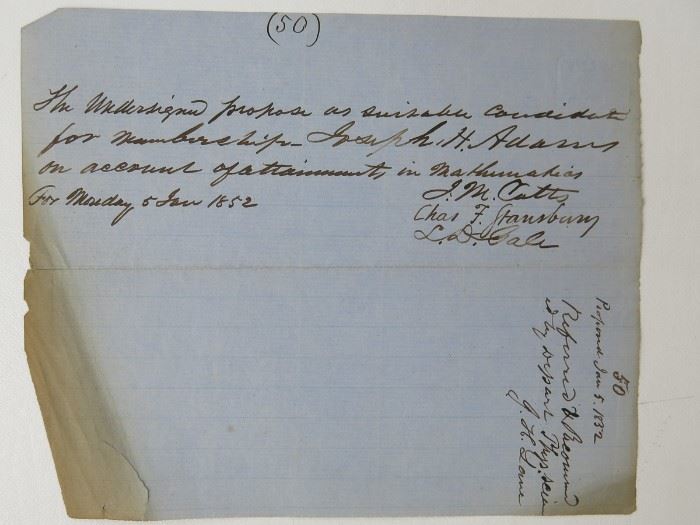 (50)
The Undersigned propose as suitable candidate
for membership - Joseph. H. Adams
on account of attainments in Mathematics
For Monday 5 Jan 1852
J. M. Cutts
Chas F. Stansbury
L. D. Gale
50
Proposed Jan 5. 1852
Referred & Recomm
ed by Depart Phys. Scie
J. H. Lane